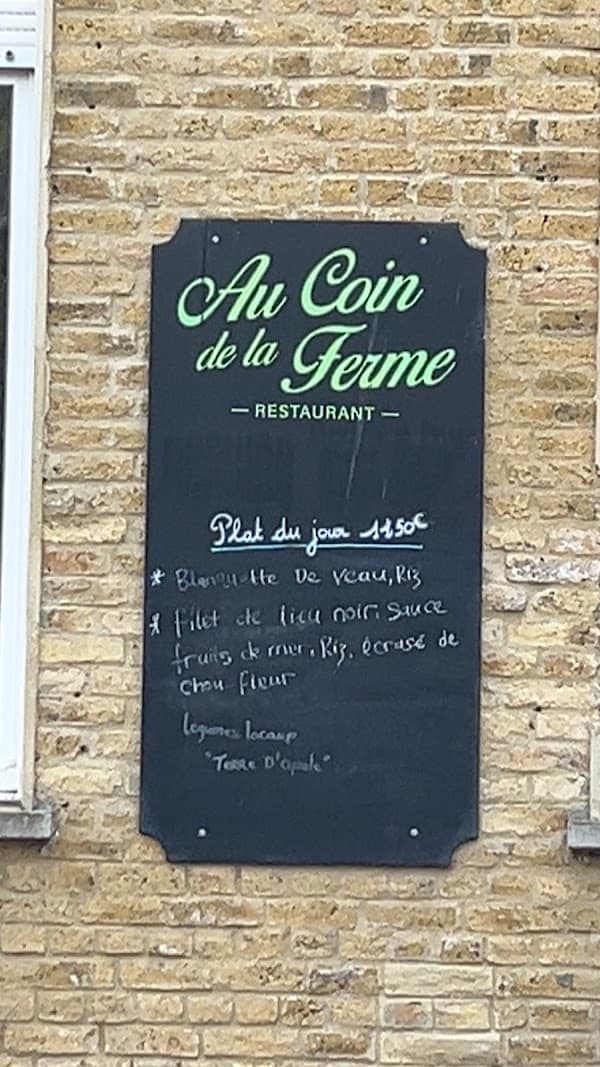 Au Coin
de la Ferme
— RESTAURANT —
Plat du jour 11.50€
* Blanquette De Veau, Riz
* filet de lieu noir, sauce
fruits de mer, Riz, écrasé de
chou fleur
Légumes locaux
"Terre D'Opale"